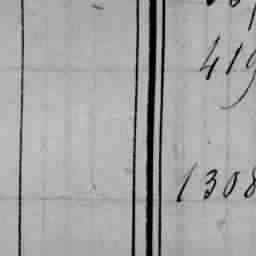 419
1308